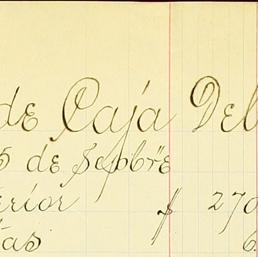 de Caja Del
5 de Sepbre
erior $ 270
tas 6